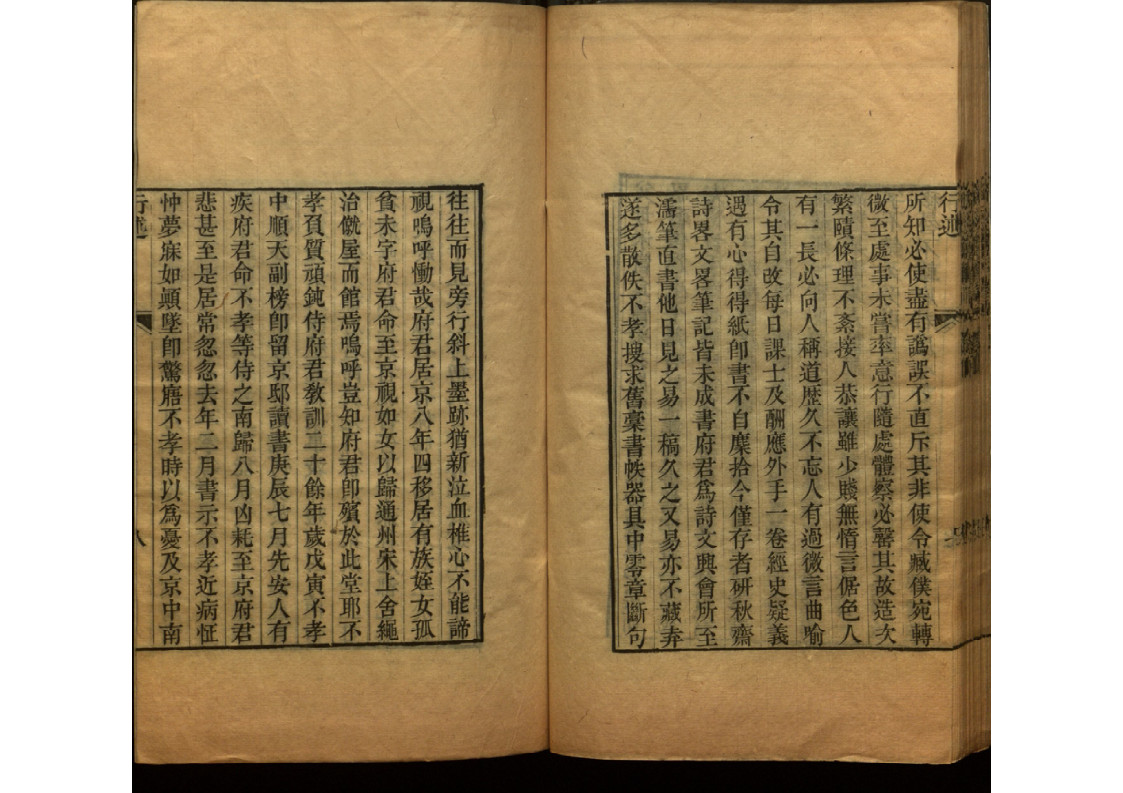 行述
所知必使盡有譌誤不直斥其非使令臧僕宛轉
微至處事未嘗率意行隨處體察必罄其故造次
繁賾條理不紊接人恭讓雖少賤無惰言倨色人
有一長必向人稱道歷久不忘人有過微言曲喻
令其自改每日課士及酬應外手一卷經史疑義
遇有心得得紙卽書不自麇拾今僅存者研秋齋
詩畧文畧筆記皆未成書府君爲詩文興會所至
濡筆直書他日見之易一稿久之又易亦不藏弆
遂多散佚不孝搜求舊稾書帙器具中零章斷句
往往而見旁行斜上墨跡猶新泣血椎心不能諦
視嗚呼慟哉府君居京八年四移居有族姪女孤
貧未字府君命至京視如女以歸通州宋上舍繩
治僦屋而館焉嗚呼豈知府君卽殯於此堂耶不
孝負質頑鈍侍府君教訓二十餘年歲戊寅不孝
中順天副榜卽留京邸讀書庚辰七月先安人有
疾府君命不孝等侍之南歸八月凶耗至京府君
悲甚至是居常忽忽去年二月書示不孝近病怔
忡夢寐如顚墜卽驚寤不孝時以爲憂及京中南
行述
八